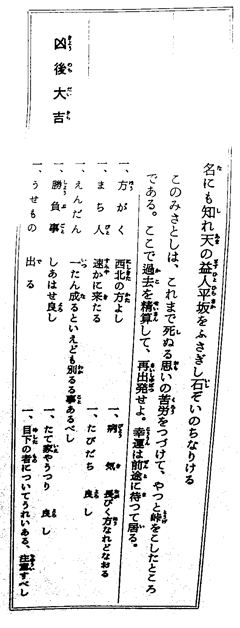 名にも知れ天の益人平坂をふさぎし石ぞいのちなりける
このみさとしは、これまで死ぬる思いの苦労をつづけて、やつと峠をこしたところ
である。ここで過去を精算して、再出発せよ。幸運は前途に待つて居る。
凶後大吉
一、方がく 西北の方よし
一、まち人 速かに来たる
一、えんだん 一たん成るといえども別るる事あるべし
一、勝負事 しあはせ良し
一、うせもの 出る
一、病気 長びく方なれどなおる
一、たびだち 良し
一、たて家やうつり 良し
一、目下の者についてうれいある。注意すべし